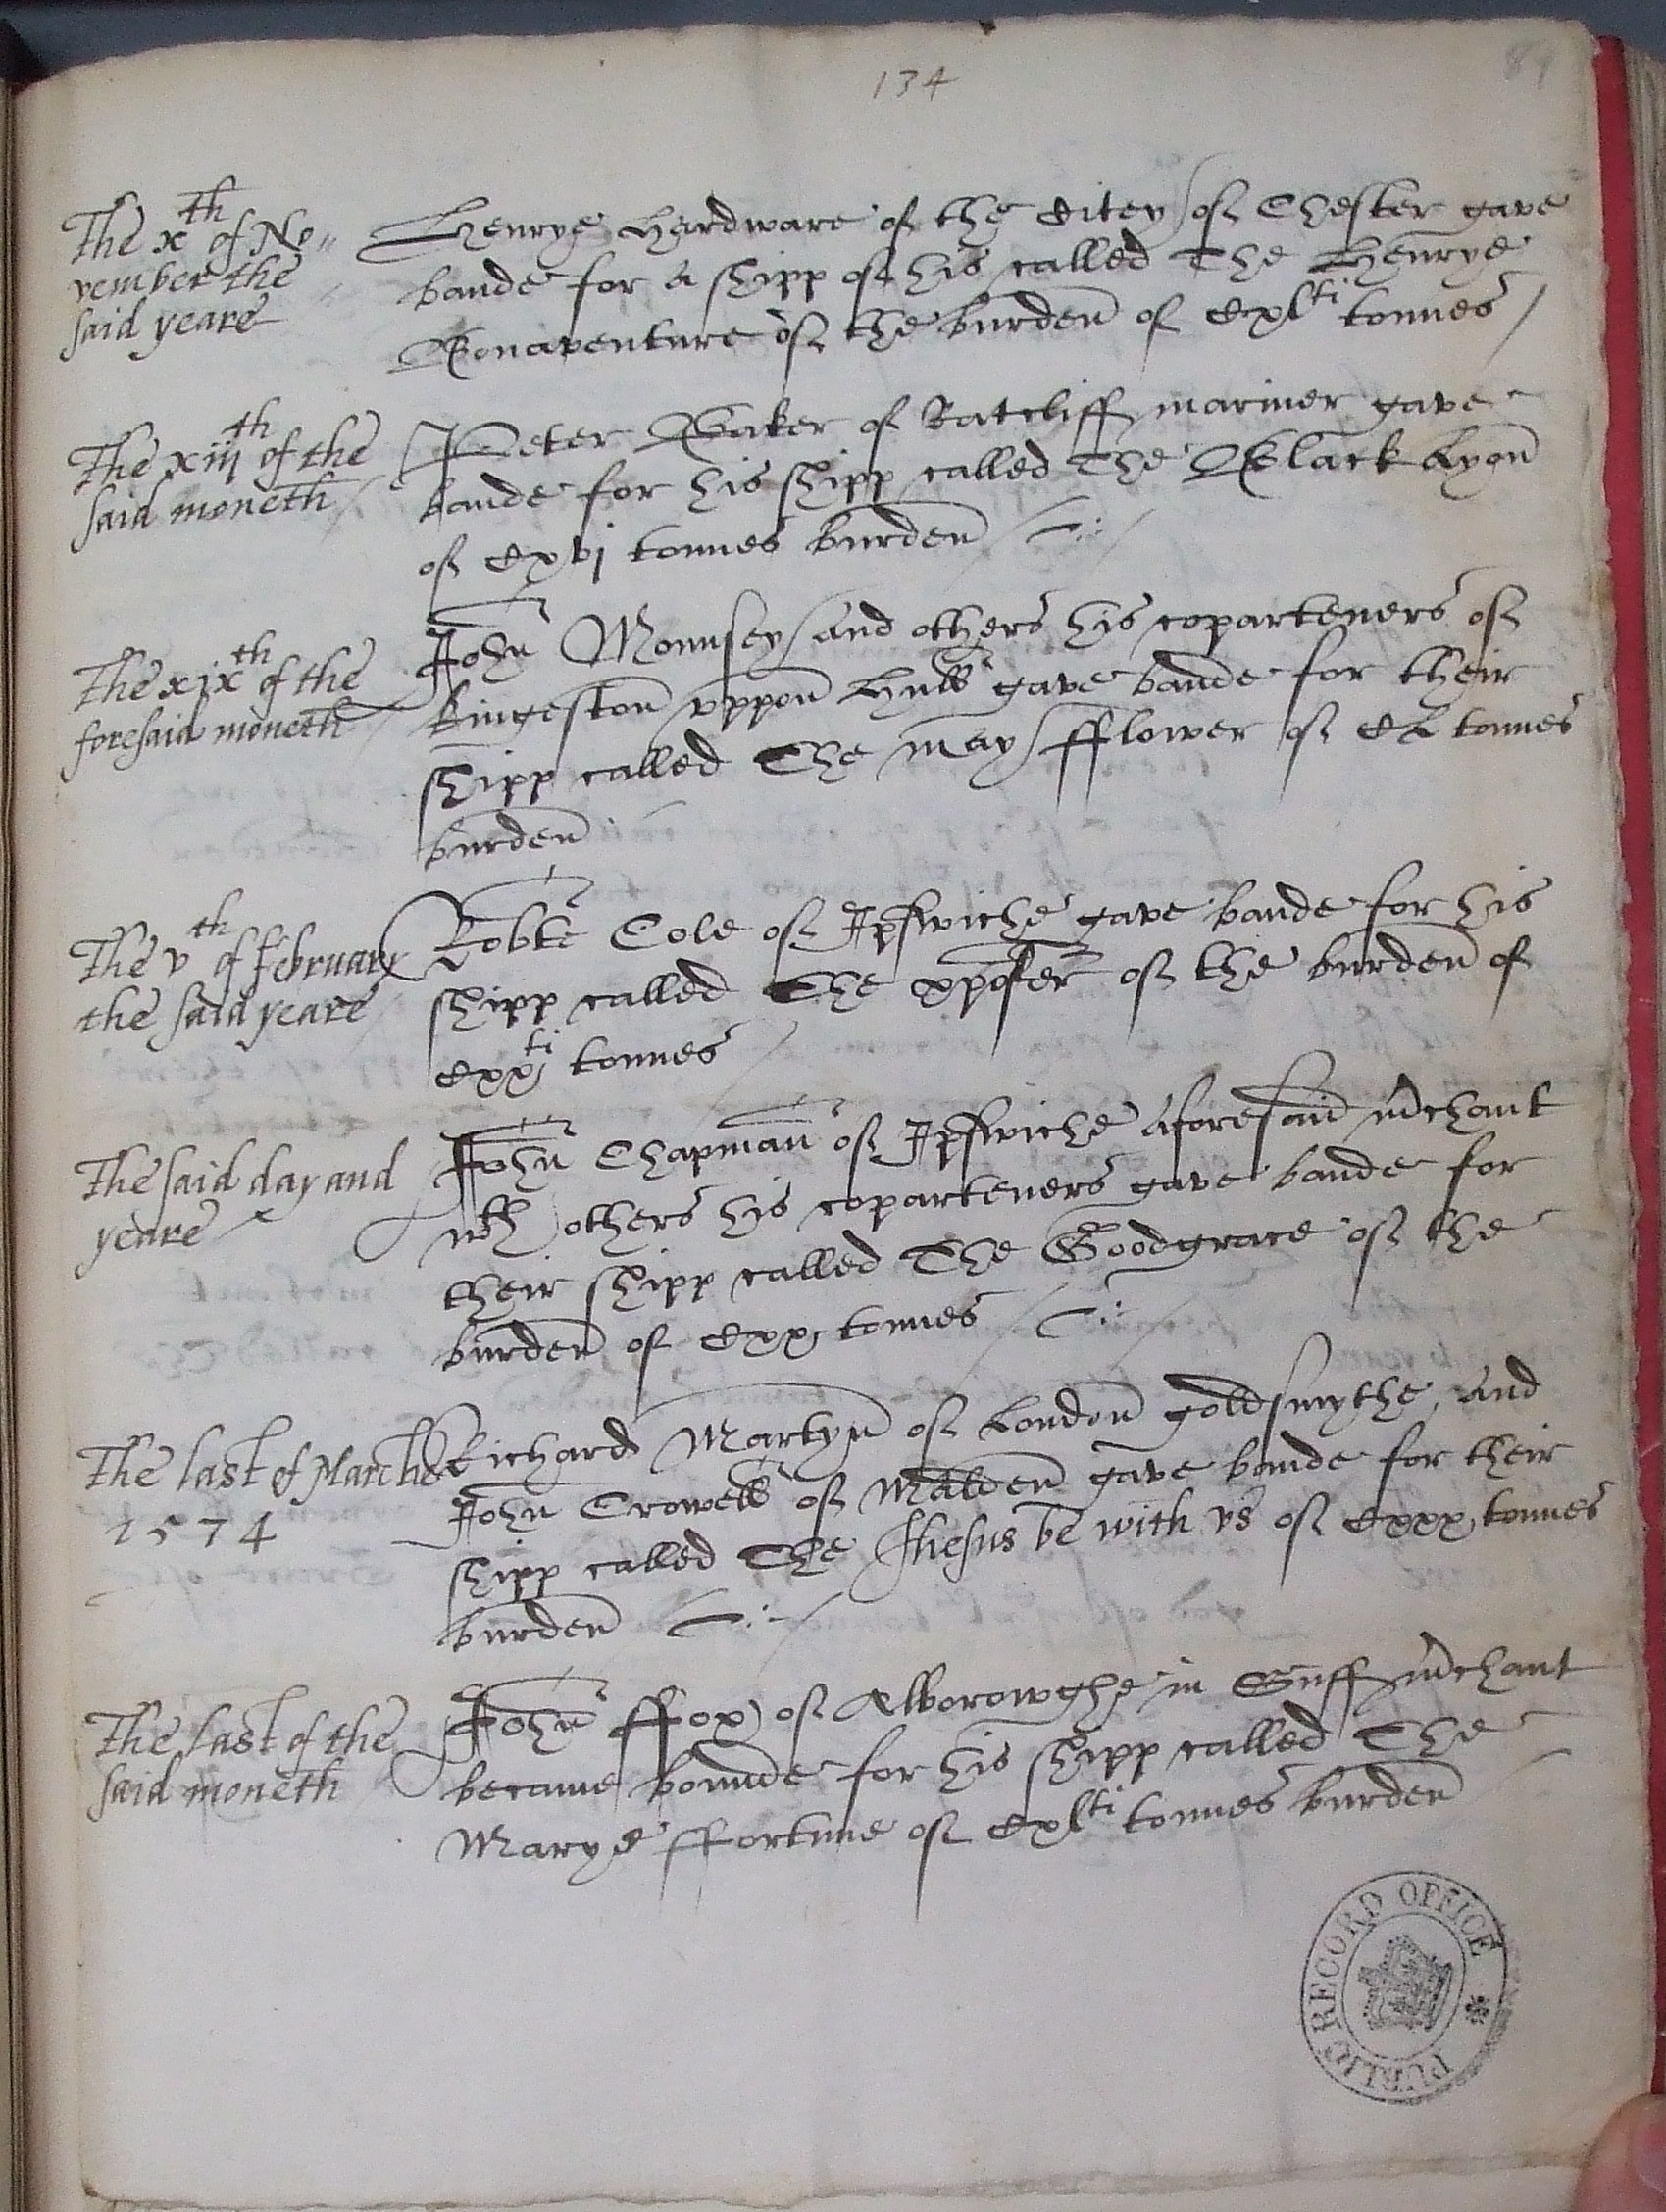 134
89
The xth of No„
vember the
said yeare
Henrye Hardware of the Citey of Chester gave
bande for a shipp of his called The Henrye
Bonaventure of the burden of Cxlti tonnes
The xiijth of the
said moneth
Peter Baker of Ratcliff mariner gave
bande for his shipp called The Black Lyon
of Cxvj tonnes burden
The xixth of the
foresaid moneth
John Mounsey and others his coparteners of
Kingeston vppon Hull gave bande for their
shipp called The may fflower of CL tonnes
burden
The vth of february
the said yeare
Robte Cole of Ipswiche gave bande for his
shipp called The xpofer of the burden of
Cxxti tonnes
The said day and
yeare
John Chapman of Ipswiche aforesaid mchant
wth others his coparteners gave bande for
their shipp called The Goodgrace of the
burden of Cxx tonnes
The last of Marche
1574
Richard Martyn of London goldsmythe, and
John Crowell of Malden gave bande for their
shipp called The Jhesus be with vs of Cxxx tonnes
burden
The last of the
said moneth
John ffox of Alborowghe in Suff mchant
became bounde for his shipp called The
Marye ffortune of Cxlti tonnes burden
PUBLIC RECORD OFFICE